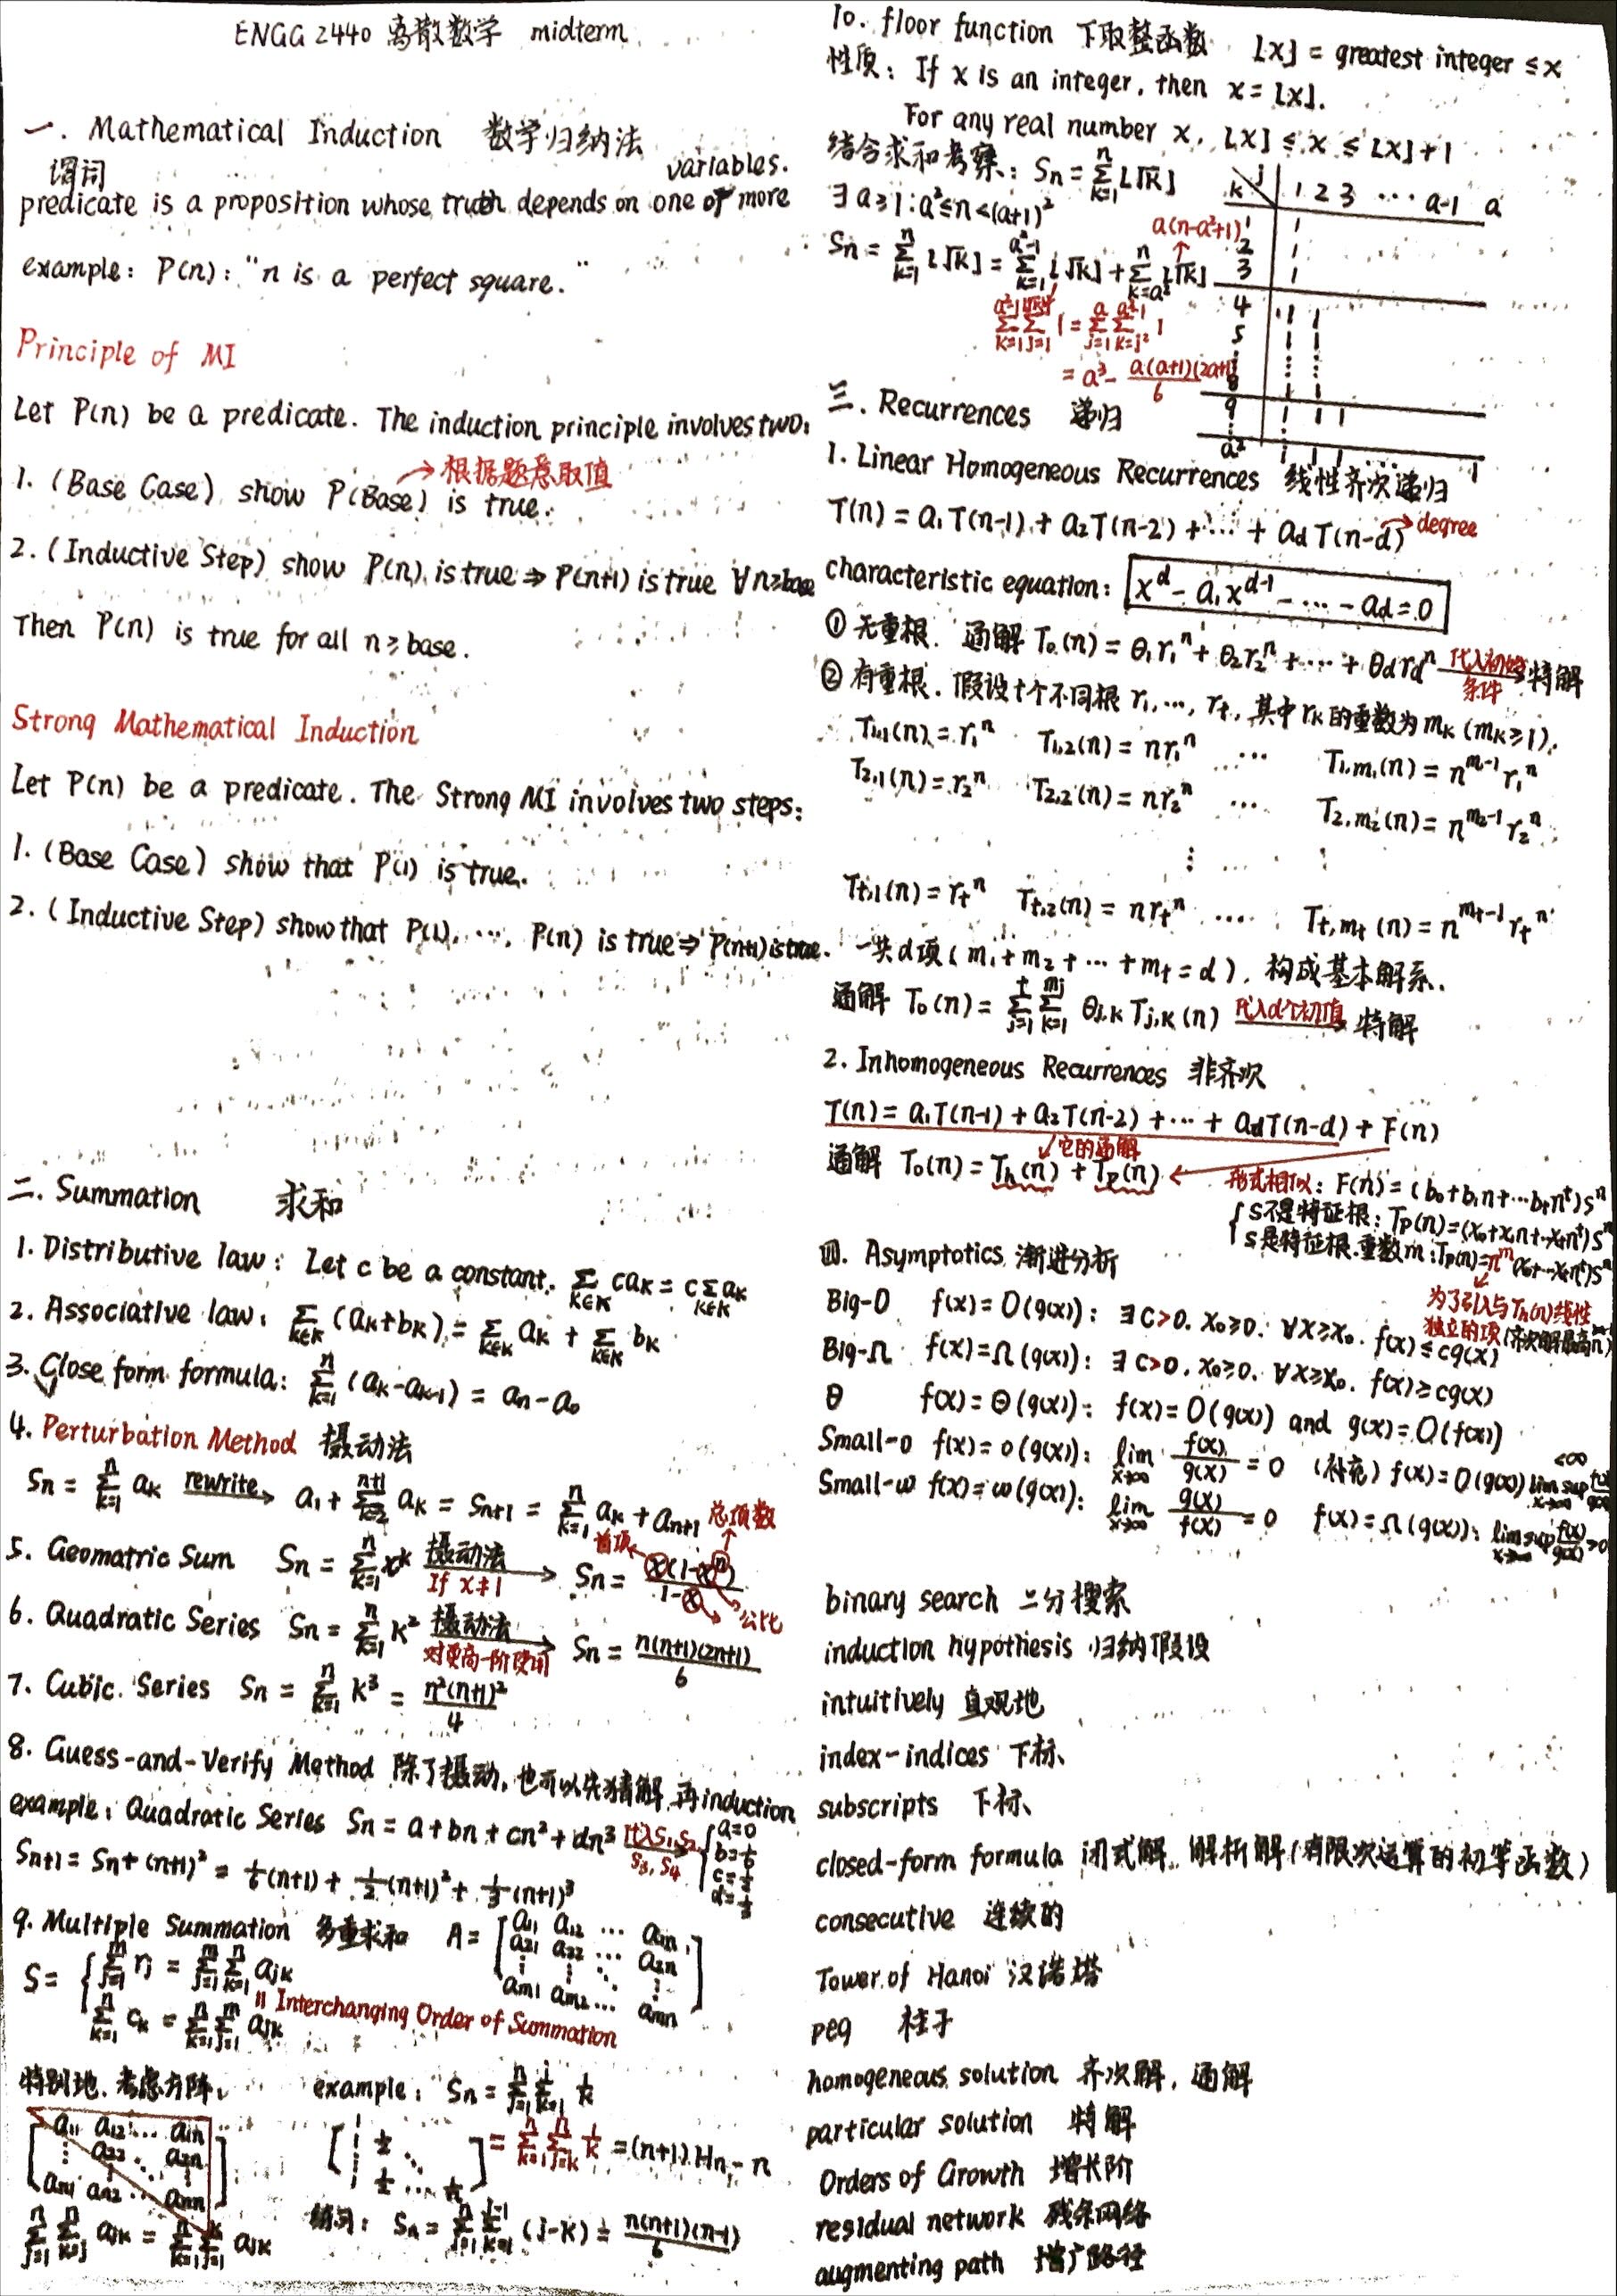 ENGG 2440 离散数学 midterm
一. Mathematical Induction 数学归纳法
谓词 variables.
predicate is a proposition whose truth depends on one or more
example: P(n): "n is a perfect square."
Principle of MI
Let P(n) be a predicate. The induction principle involves two:
→根据题意取值
1. (Base Case) show P(Base) is true.
2. (Inductive Step) show P(n) is true ⇒ P(n+1) is true ∀n≥base
Then P(n) is true for all n≥base.
Strong Mathematical Induction
Let P(n) be a predicate. The Strong MI involves two steps:
1. (Base Case) show that P(1) is true.
2. (Inductive Step) show that P(1), ..., P(n) is true ⇒ P(n+1) is true.
二. Summation 求和
1. Distributive law: Let c be a constant. Σ_{k∈K} ca_k = c Σ_{k∈K} a_k
2. Associative law: Σ_{k∈K} (a_k+b_k) = Σ_{k∈K} a_k + Σ_{k∈K} b_k
3. Close form formula: Σ_{k=1}^n (a_k-a_{k-1}) = a_n-a_0
4. Perturbation Method 摄动法
S_n = Σ_{k=1}^n a_k rewrite→ a_1 + Σ_{k=2}^{n+1} a_k = S_{n+1} = Σ_{k=1}^n a_k + a_{n+1}
首项 总项数
5. Geomatric Sum S_n = Σ_{k=1}^n x^k 摄动法 If x≠1 → S_n = x(1-x^n)/(1-x) 公比
6. Quadratic Series S_n = Σ_{k=1}^n k² 摄动法 对更高一阶使用 → S_n = n(n+1)(2n+1)/6
7. Cubic Series S_n = Σ_{k=1}^n k³ = n²(n+1)²/4
8. Guess-and-Verify Method 除了摄动,也可以先猜解,再induction
example: Quadratic Series S_n = a+bn+cn²+dn³ 代入S_1,S_2,S_3,S_4 → { a=0 b=1/6 c=1/2 d=1/3
S_{n+1} = S_n+(n+1)² = 1/6(n+1) + 1/2(n+1)² + 1/3(n+1)³
9. Multiple Summation 多重求和 A = [a_11 a_12 ... a_1n
a_21 a_22 ... a_2n
⋮ ⋮ ⋱ ⋮
a_m1 a_m2 ... a_mn]
S = { Σ_{j=1}^m r_j = Σ_{j=1}^m Σ_{k=1}^n a_jk
|| Interchanging Order of Summation
Σ_{k=1}^n c_k = Σ_{k=1}^n Σ_{j=1}^m a_jk
特别地,考虑方阵.
[a_11 a_12 ... a_1n
⋮ a_22 ... a_2n
a_n1 a_n2 ... a_nn]
Σ_{j=1}^n Σ_{k=j}^n a_jk = Σ_{k=1}^n Σ_{j=1}^k a_jk
example: S_n = Σ_{j=1}^n Σ_{k=1}^j 1/k
= Σ_{k=1}^n Σ_{j=k}^n 1/k = (n+1)H_n - n
练习: S_n = Σ_{j=1}^n Σ_{k=1}^{j-1} (j-k) = n(n+1)(n-1)/6
10. floor function 下取整函数 ⌊x⌋ = greatest integer ≤ x
性质: If x is an integer, then x = ⌊x⌋.
For any real number x, ⌊x⌋ ≤ x ≤ ⌊x⌋+1
结合求和考察: S_n = Σ_{k=1}^n ⌊√k⌋
∃ a≥1: a²≤n<(a+1)²
a(n-a²+1)
S_n = Σ_{k=1}^n ⌊√k⌋ = Σ_{k=1}^{a²-1} ⌊√k⌋ + Σ_{k=a²}^n ⌊√k⌋
Σ_{k=1}^{a²-1} Σ_{j=1}^{⌊√k⌋} 1 = Σ_{j=1}^a Σ_{k=j²}^{a²-1} 1
= a³ - a(a+1)(2a+1)/6
k j 1 2 3 ... a-1 a
1 1
2
3 1
4 1 1
5 1 1
⋮
8 1 1
9 1 1 1
⋮
a² 1 1 1 ... 1
三. Recurrences 递归
1. Linear Homogeneous Recurrences 线性齐次递归
T(n) = a_1T(n-1) + a_2T(n-2) + ... + a_dT(n-d) →degree
characteristic equation: x^d - a_1x^{d-1} - ... - a_d = 0
① 无重根. 通解 T_0(n) = θ_1r_1^n + θ_2r_2^n + ... + θ_dr_d^n 代入初始条件→特解
② 有重根. 假设t个不同根 r_1, ..., r_t, 其中r_k的重数为m_k (m_k≥1).
T_{1,1}(n) = r_1^n T_{1,2}(n) = nr_1^n ... T_{1,m_1}(n) = n^{m_1-1}r_1^n
T_{2,1}(n) = r_2^n T_{2,2}(n) = nr_2^n ... T_{2,m_2}(n) = n^{m_2-1}r_2^n
⋮
T_{t,1}(n) = r_t^n T_{t,2}(n) = nr_t^n ... T_{t,m_t}(n) = n^{m_t-1}r_t^n
一共d项 (m_1+m_2+...+m_t=d), 构成基本解系.
通解 T_0(n) = Σ_{j=1}^t Σ_{k=1}^{m_j} θ_{j,k}T_{j,k}(n) 代入d个初值→特解
2. Inhomogeneous Recurrences 非齐次
T(n) = a_1T(n-1) + a_2T(n-2) + ... + a_dT(n-d) + F(n)
它的通解
通解 T_0(n) = T_h(n) + T_p(n) ←
形式相似: F(n) = (b_0+b_1n+...b_tn^t)s^n
{ s不是特征根: T_p(n)=(x_0+x_1n+...x_tn^t)s^n
s是特征根,重数m: T_p(n)=n^m(x_0+...x_tn^t)s^n
为了引入与T_h(n)线性
独立的项(齐次解最高n)
四. Asymptotics 渐进分析
Big-O f(x) = O(g(x)): ∃ c>0, x_0≥0. ∀x≥x_0. f(x) ≤ cg(x)
Big-Ω f(x) = Ω(g(x)): ∃ c>0, x_0≥0. ∀x≥x_0. f(x) ≥ cg(x)
θ f(x) = Θ(g(x)): f(x) = O(g(x)) and g(x) = O(f(x))
Small-o f(x) = o(g(x)): lim_{x→∞} f(x)/g(x) = 0 (补充) f(x) = O(g(x)) lim sup_{x→∞} f(x)/g(x) <∞
Small-ω f(x) = ω(g(x)): lim_{x→∞} g(x)/f(x) = 0 f(x) = Ω(g(x)): lim sup_{x→∞} f(x)/g(x) >0
binary search 二分搜索
induction hypothesis 归纳假设
intuitively 直观地
index-indices 下标、
subscripts 下标、
closed-form formula 闭式解, 解析解(有限次运算的初等函数)
consecutive 连续的
Tower of Hanoi 汉诺塔
peg 柱子
homogeneous solution 齐次解, 通解
particular solution 特解
Orders of Growth 增长阶
residual network 残余网络
augmenting path 增广路径